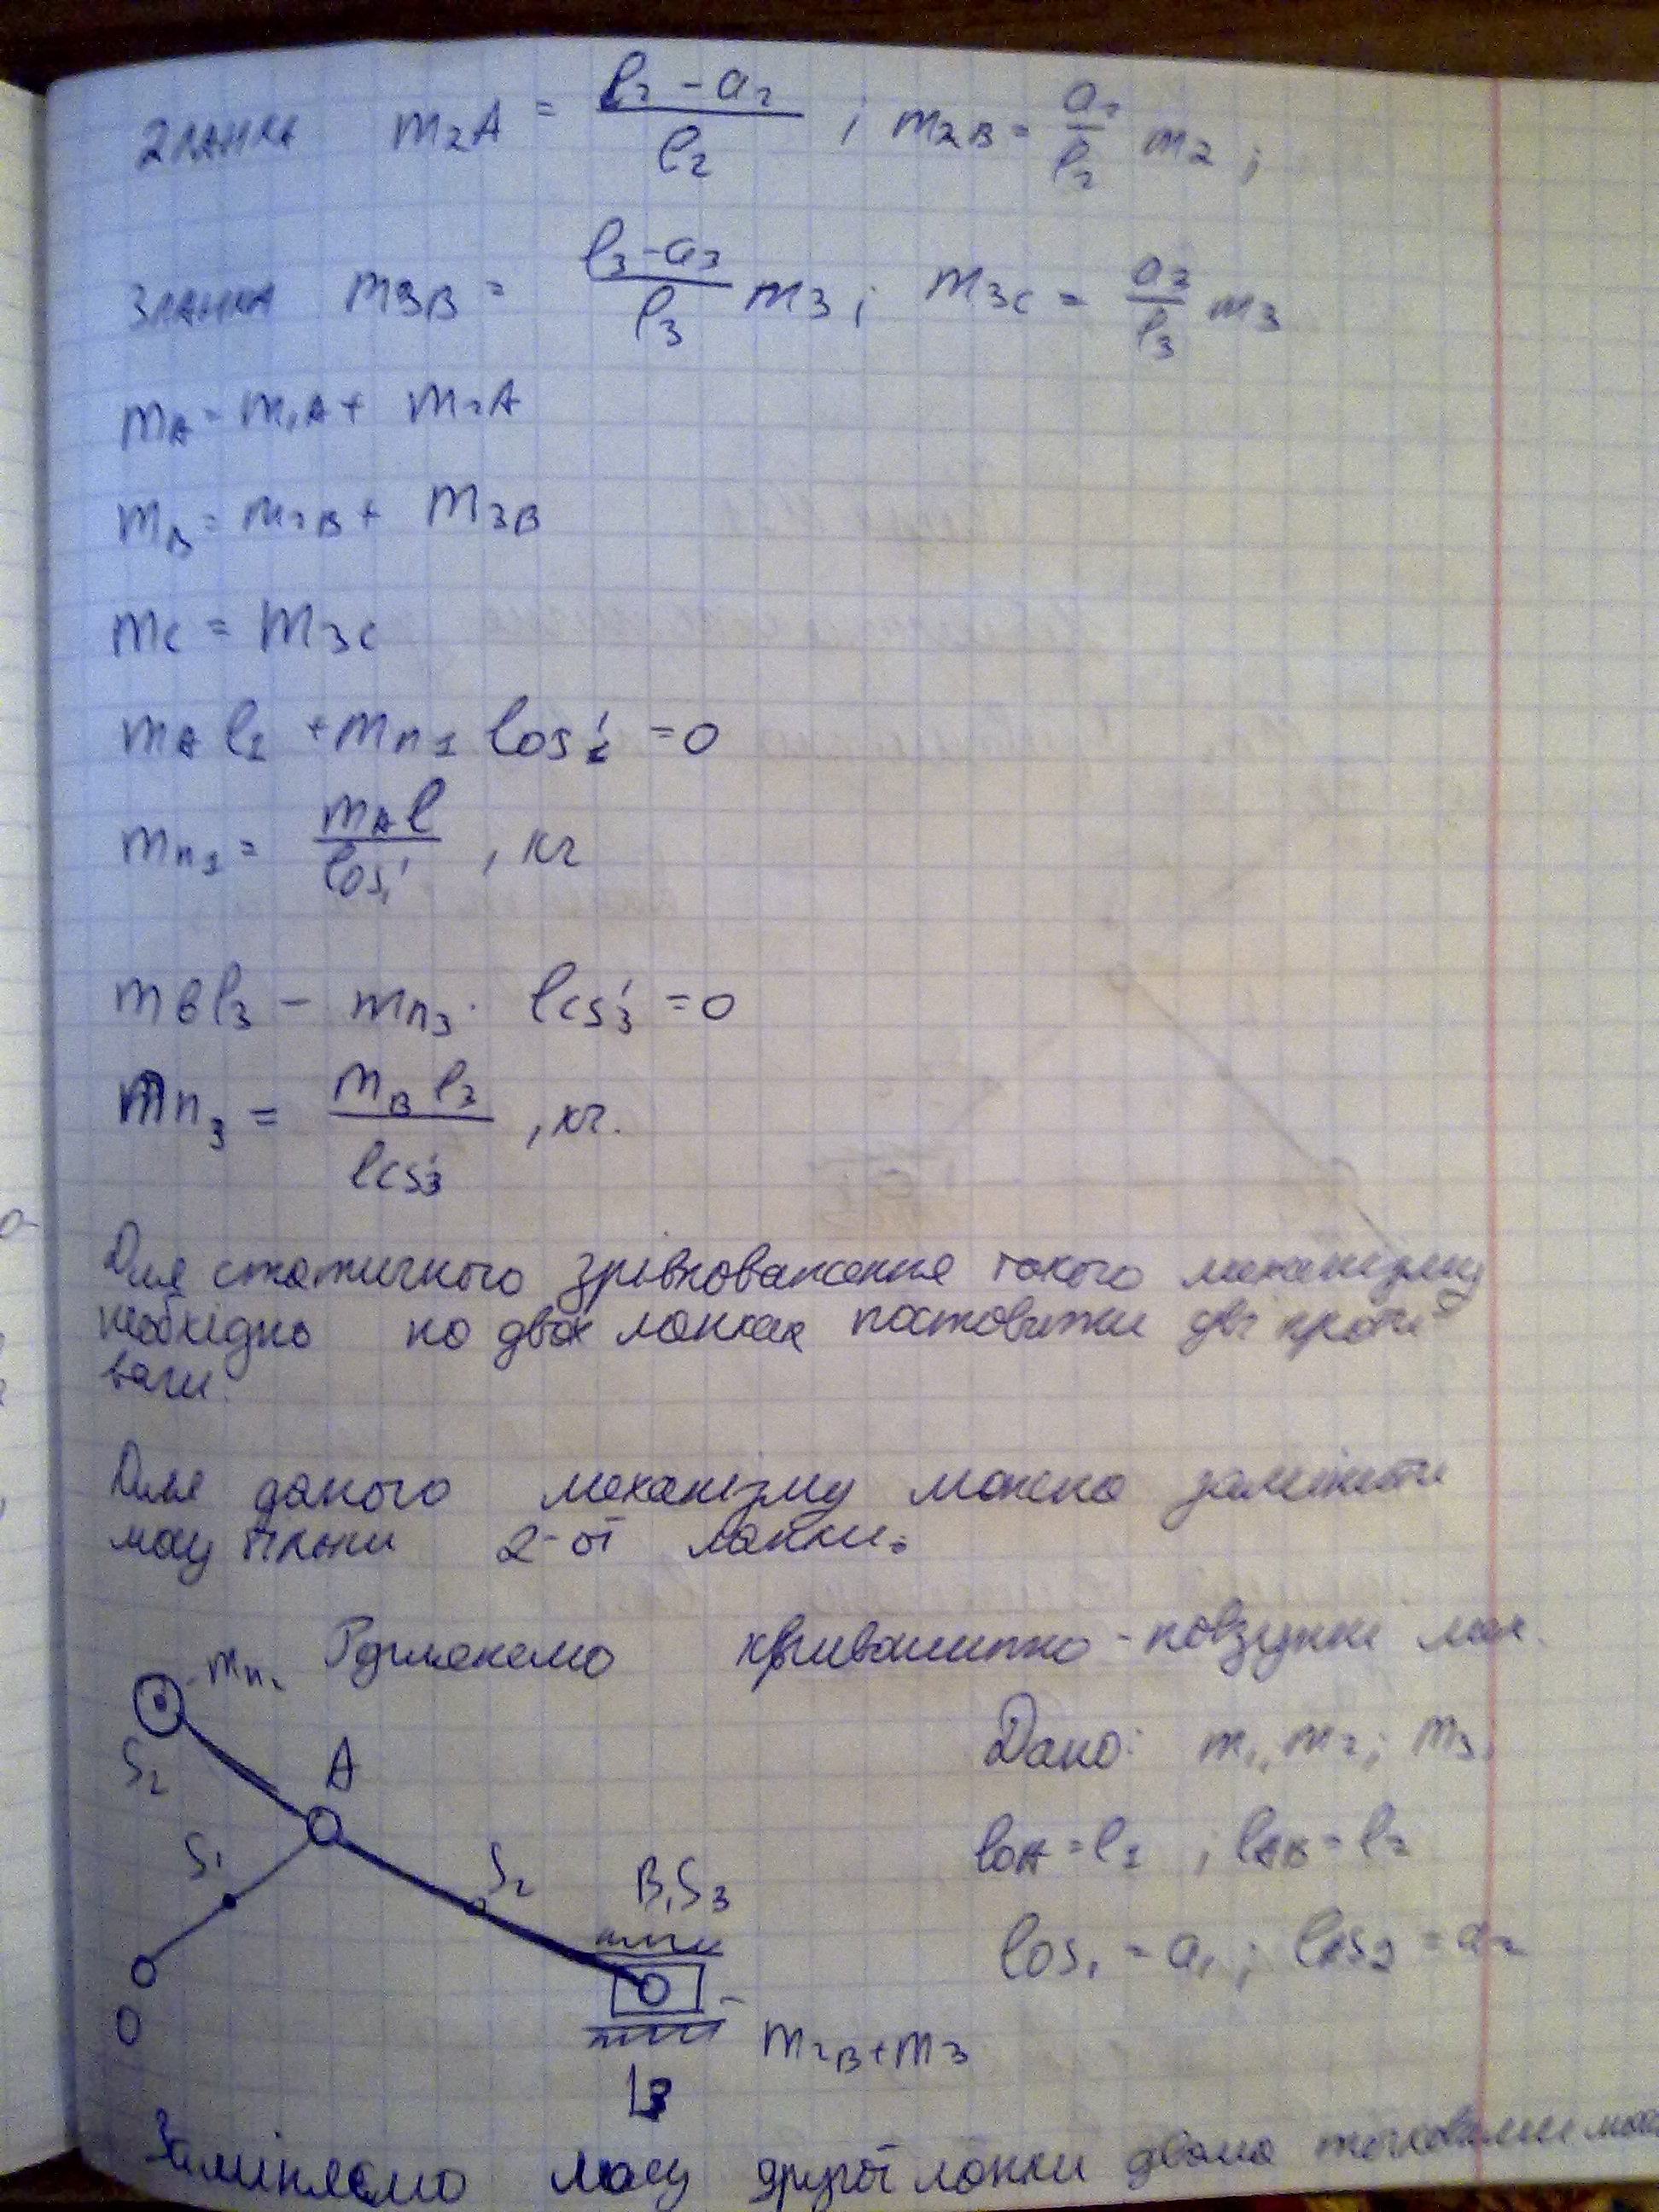 2 ланка m₂A = (l₂ - a₂)/l₂ ; m₂B = a₂/l₂ m₂ ;
3 ланка m₃B = (l₃ - a₃)/l₃ m₃ ; m₃C = a₃/l₃ m₃
mA = m₁A + m₂A
mB = m₂B + m₃B
mC = m₃C
mA l₁ + mп₁ los₁' = 0
mп₁ = mA l / los₁' , кг
mB l₃ - mп₃ · lcs₃' = 0
mп₃ = mB l₃ / lcs₃' , кг.
Для статичного зрівноваження такого механізму
необхідно на двох ланках поставити дві проти
ваги.
Для даного механізму можна замінити
масу тільки 2-ої ланки.
mп₂ Розглянемо кривошипно-повзунний мех.
S₂ A
Дано: m₁, m₂; m₃.
S₁ S₂ B,S₃
loA = l₁ ; lAB = l₂
los₁ = a₁ ; lAs₂ = a₂
O
m₂B + m₃
Заміняємо масу другої ланки двома точковими